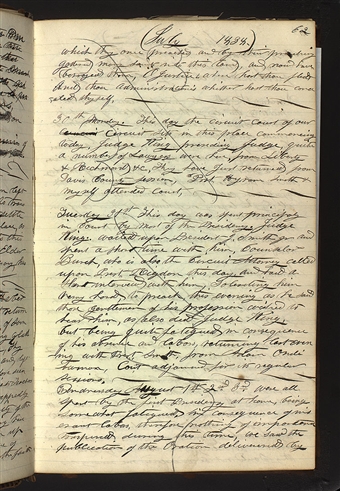 (July 1838.) 62
which they once practised and by their practising
godliness made sacred this land, and now have
betrayed thee; O Justice where hast thou fled
And thou administration whither hast thou con-
cealed thyself.
30th Monday. This day the circuit court of our
Circuit sits in this place commencing
today, Judge King presiding Judge, quite
a number of Lawyers were here from Liberty
& Richmond &c. They have Just returned from
Davis County session. Prest. Hyrum Smith &
myself attended Court,
Tuesday 31st This day was spent principally
in Court by most of the Presidency Judge
King waited upon Presdt. J. Smith jr. and
spent a short time with him, Counsellor
Burch who is also the Circuit Attorney called
upon Prest Rigdon this day and had a
short interview with him, Soliciting him
very hard to preach this evening as he said
those gentlemen of his profession wished to
hear him, as also did Judge King,
but being quite fatigued in consequence
of his absence and labors, returning last even-
ing with Prest Smith from Adam Ondi
Awman, Court adjourned for its regular
sessions,
Wednesday August 1st 2nd & 3rd were all
spent by the first Presidency at home, being
somewhat fatigued in consequence of in-
cesant labor, therefore nothing of importance
transpired during this time, we saw the
publication of the Oration delivered by